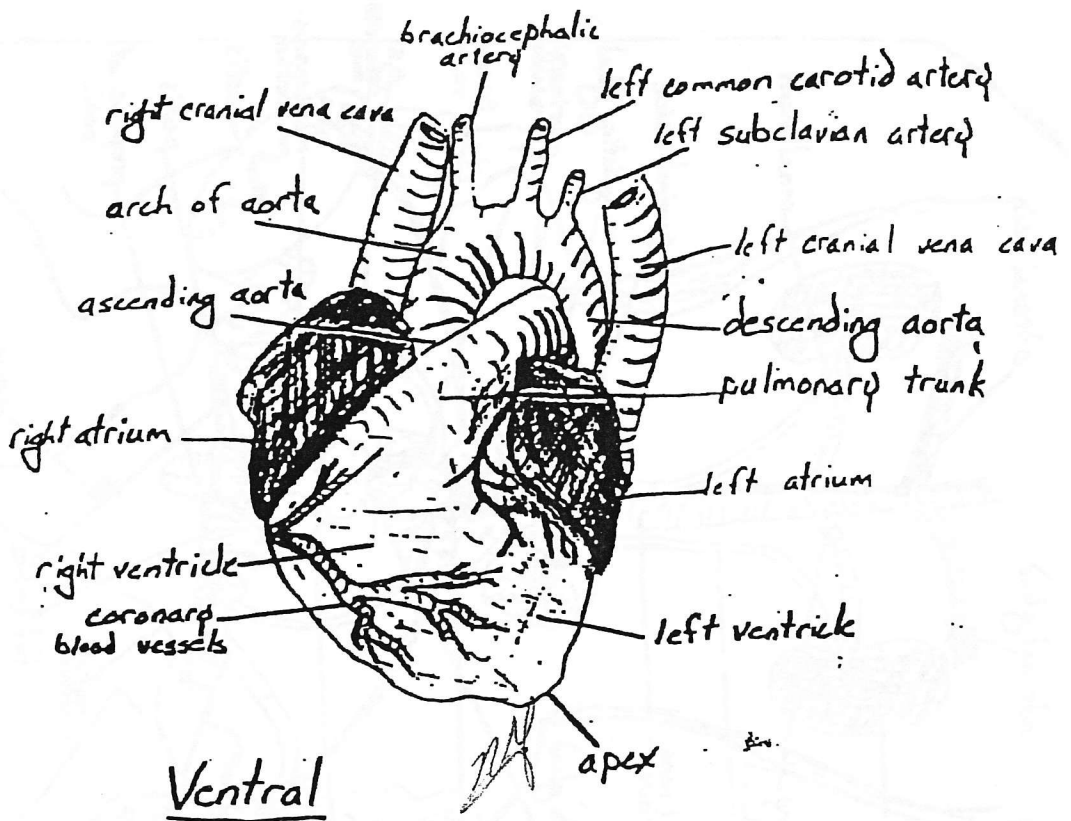 brachiocephalic
artery
left common carotid artery
right cranial vena cava
left subclavian artery
arch of aorta
left cranial vena cava
ascending aorta
descending aorta
pulmonary trunk
right atrium
left atrium
right ventricle
coronary
blood vessels
left ventricle
apex
Ventral